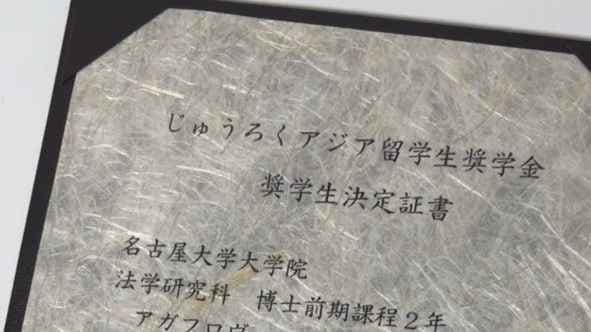 じゅうろくアジア留学生奨学金
奨学生決定証書
名古屋大学大学院
法学研究科 博士前期課程2年
アガフロヴ